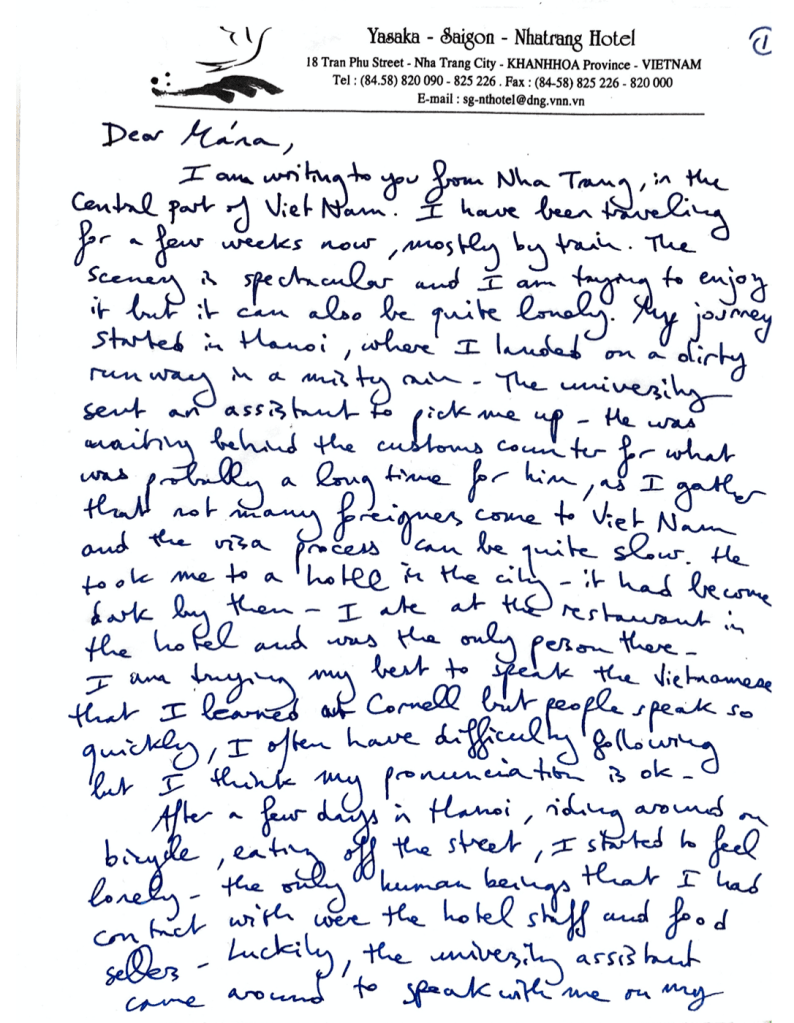 Yasaka - Saigon - Nhatrang Hotel
18 Tran Phu Street - Nha Trang City - KHANHHOA Province - VIETNAM
Tel : (84.58) 820 090 - 825 226 . Fax : (84-58) 825 226 - 820 000
E-mail : sg-nthotel@dng.vnn.vn
1
Dear Mána,
I am writing to you from Nha Trang, in the
Central part of Viet Nam. I have been traveling
for a few weeks now, mostly by train. The
scenery is spectacular and I am trying to enjoy
it but it can also be quite lonely. My journey
started in Hanoi, where I landed on a dirty
runway in a misty rain - The university
sent an assistant to pick me up - He was
waiting behind the customs counter for what
was probably a long time for him, as I gather
that not many foreigners come to Viet Nam
and the visa process can be quite slow. He
took me to a hotel in the city - it had become
dark by then - I ate at the restaurant in
the hotel and was the only person there -
I am trying my best to speak the Vietnamese
that I learned at Cornell but people speak so
quickly, I often have difficulty following
but I think my pronunciation is ok -
After a few days in Hanoi, riding around on
bicycle, eating off the street, I started to feel
lonely - the only human beings that I had
contact with were the hotel staff and food
sellers - Luckily, the university assistant
came around to speak with me on my